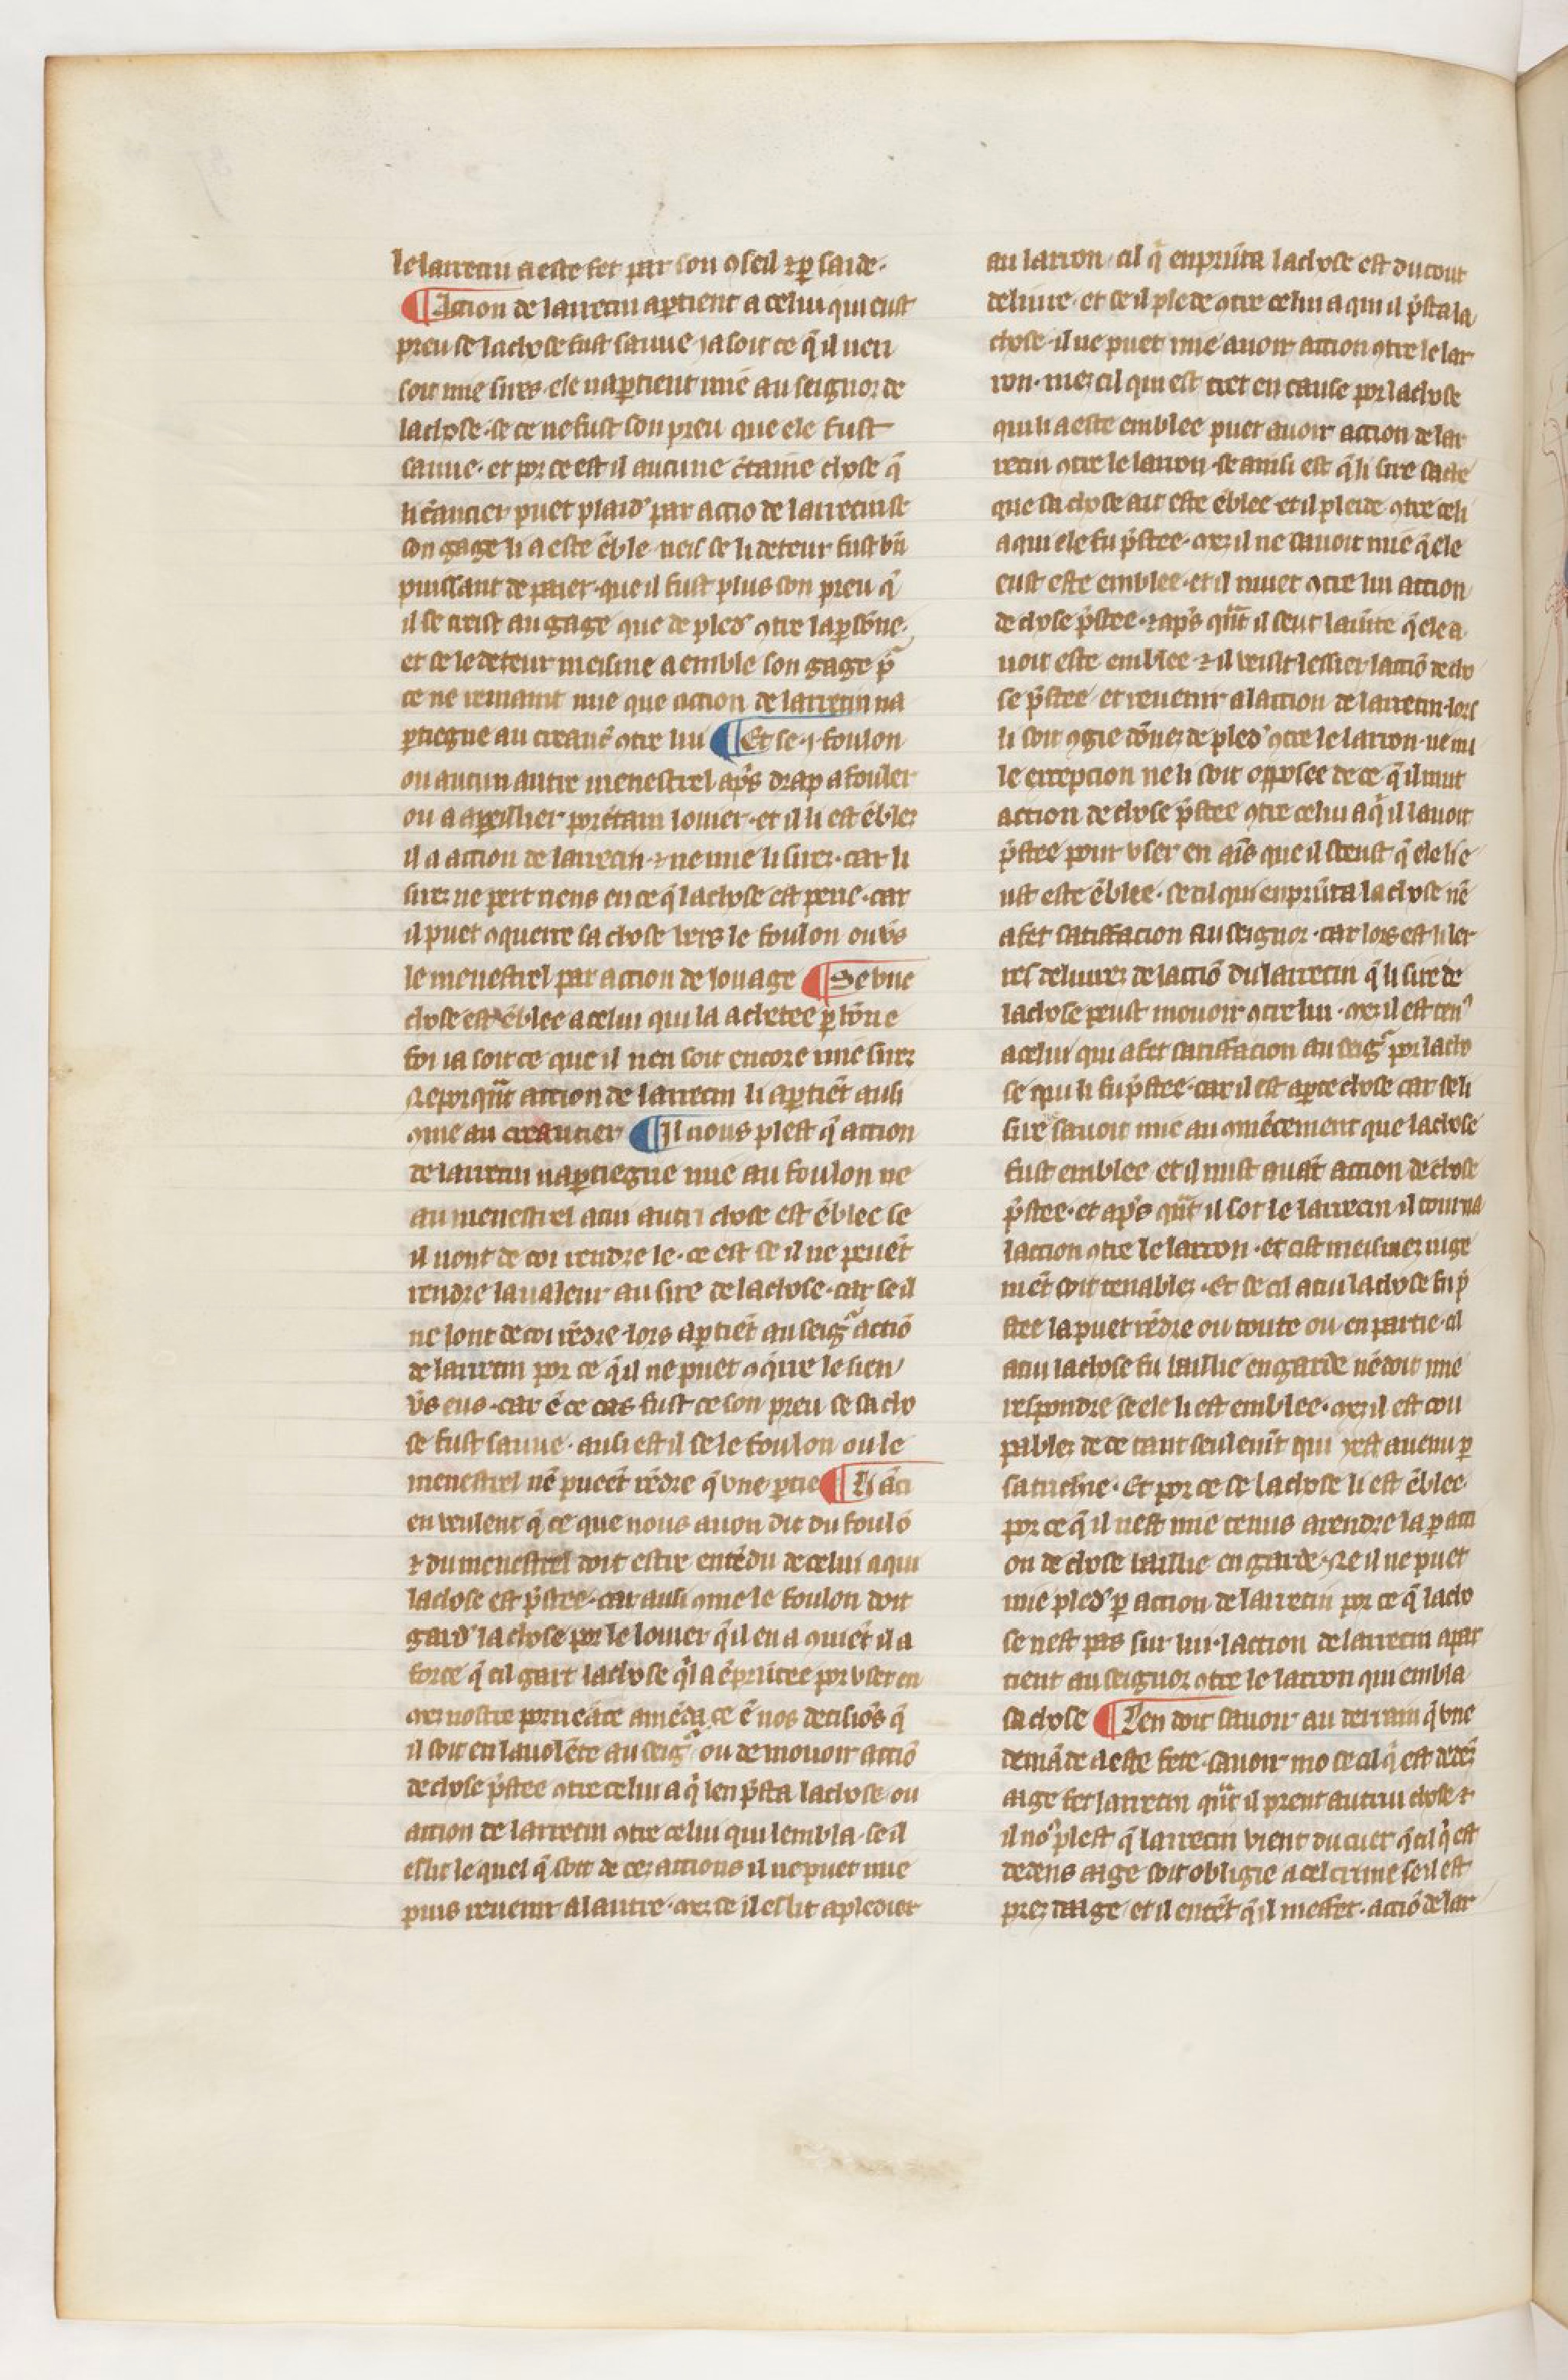 le larrecin a este fet par son ꝯseil ⁊ ꝑ saide.
¶ Action de larrecin aꝑtient a celui qui eust
preu se la chose fust sauue ja soit ce q̃ il nen
soit mie sires. ele naꝑtient mie au seignor de
la chose. se ce ne fust son preu que ele fust
sauue. et por ce est il aucune c̃taine chose q̃
li c̃ancier puet plaid' par actio de larrecin se
son gage li a este ẽble. neis se li deteur fust bñ
puissant de paier. que il fust plus son preu q̃
il se tenist au gage que de pled' ꝯtre la ꝑsone.
et se le deteur meisme a emble son gage p̃
ce ne remaint mie que action de larrecin na
ꝑtiegne au creanc̃ ꝯtre lui ¶ Et se .i. foulon
ou aucun autre menestrel ap̃s drap a fouler
ou a apeillier por c̃tain louier. et il li est ẽblez
il a action de larrecin. ⁊ ne mie li sirez. car li
sirez ne pert riens en ce q̃ la chose est perie. car
il puet ꝯquerre sa chose vers le foulon ou v̾s
le menestrel par action de louage ¶ Se vne
chose est ẽblee a celui qui la achetee ꝑ bõne
foi ia soit ce que il nen soit encore mie sirez
Ne por qũt action de larrecin li aꝑtiẽt ausi
ꝯme au creancier ¶ Il nous plest q̃ action
de larrecin naꝑtiegne mie au foulon ne
au menestrel a cui autri chose est ẽblee se
il nont de coi rendre le. ce est se il ne peuẽt
rendre la ualeur au sire de la chose. car se il
ne lont de coi rẽdre lors aꝑtiẽt au seigr̃ actiõ
de larrecin por ce q̃ il ne puet ꝯq̃rre le sien
v̾s eus. car ẽ ce cas fust ce son preu se sa cho
se fust sauue. ausi est il se le foulon ou le
menestrel nẽ pueẽt rẽdre q̃ vne ꝑtie ¶ Li ãci
en veulent q̃ ce que nous auon dit du foulõ
⁊ du menestrel doit estre entẽdu de celui a qui
la chose est p̃stee. car ausi ꝯme le foulon doit
gard' la chose por le louier q̃ il en a ꝯuiẽt il a
force q̃ cil gart la chose q̃l a ẽpr̃utee por vser en
mez nostre porueãce amẽda ce ẽ nos decisiõs q̃
il soit en la uolẽte au seigr̃ ou de mouoir actiõ
de chose p̃stee ꝯtre celui a q̃ len p̃sta la chose. ou
action de larrecin ꝯtre celui qui lembla. se il
eslit le quel q̃ soit de cez actions il ne puet mie
puis reuenir a lautre. mez se il eslit a pledoier
au larron. cil q̃ enpr̃uta la chose est du tout
deliure. et se il plede ꝯtre celui a qui il p̃sta la
chose. il ne puet mie auoir action ꝯtre le lar
ron. mez cil qui est tret en cause por la chose
qui li a este emblee puet auoir action de lar
recin ꝯtre le larron. se ainsi est q̃ li sire sache
que sa chose ait este ẽblee. et il pleide ꝯtre celi
a qui ele fu p̃stee. mez il ne sauoit mie q̃ ele
eust este emblee. et il muet ꝯtre lui action
de chose p̃stee. ⁊ ap̃s qũt il seut la uite q̃ ele a
uoit este emblee. ⁊ il veust lessier lactiõ de cho
se p̃stee. et reuenir a laction de larrecin. lors
li soit ꝯgie dõnez de pled' ꝯtre le larron. ne nu
le excepcion ne li soit opposee de ce q̃ il mut
action de chose p̃stee ꝯtre celui a q̃ il lauoit
p̃stee pour vser en ains que il seeust q̃ ele li e
ust este ẽblee. se cil qui enpr̃uta la chose nẽ
a fet satiffacion au seignor. car lors est li ler
res deliurez de lactiõ du larrecin q̃ li sire de
la chose peust mouoir ꝯtre lui. mez il est tenꝰ
a celui qui a fet satiffacion au seigr̃ por la cho
se qui li fu p̃stee. car il est aperte chose car se li
sire sauoit mie au ꝯmẽcement que la chose
fust emblee et il mist auãt action de chose
p̃stee. et ap̃s qũt il sot le larrecin il tourna
laction ꝯtre le larron. et cist meismez iuge
mẽt soit tenablez. Et se cil a cui la chose fu p̃
stee la puet rẽdre ou toute ou en partie. cil
a cui la chose fu baillie en garde nẽ doit mie
respondre se ele li est emblee. mez il est cou
pablez de ce tant seulemt̃ qui y est auenu ꝑ
sa trichie. Et por ce se la chose li est ẽblee
por ce q̃ il nest mie tenus a rendre la ꝑ acti
on de chose baillie en garde. Ne il ne puet
mie pled' ꝑ action de larrecin por ce q̃ la cho
se nest pas sur lui. laction de larrecin apar
tient au seignor ꝯtre le larron qui embla
sa chose ¶ Len doit sauoir au derrain q̃ vne
demãde a este fete. sauoir mo se cil q̃ est dedẽz
aige fet larrecin qũt il prent autrui chose ⁊
il noꝰ plest q̃ larrecin vient du cuer q̃ cil q̃ est
dedens aige soit obligie a cel crime se il est
prez daage et il entẽt q̃ il meffet. actiõ de lar